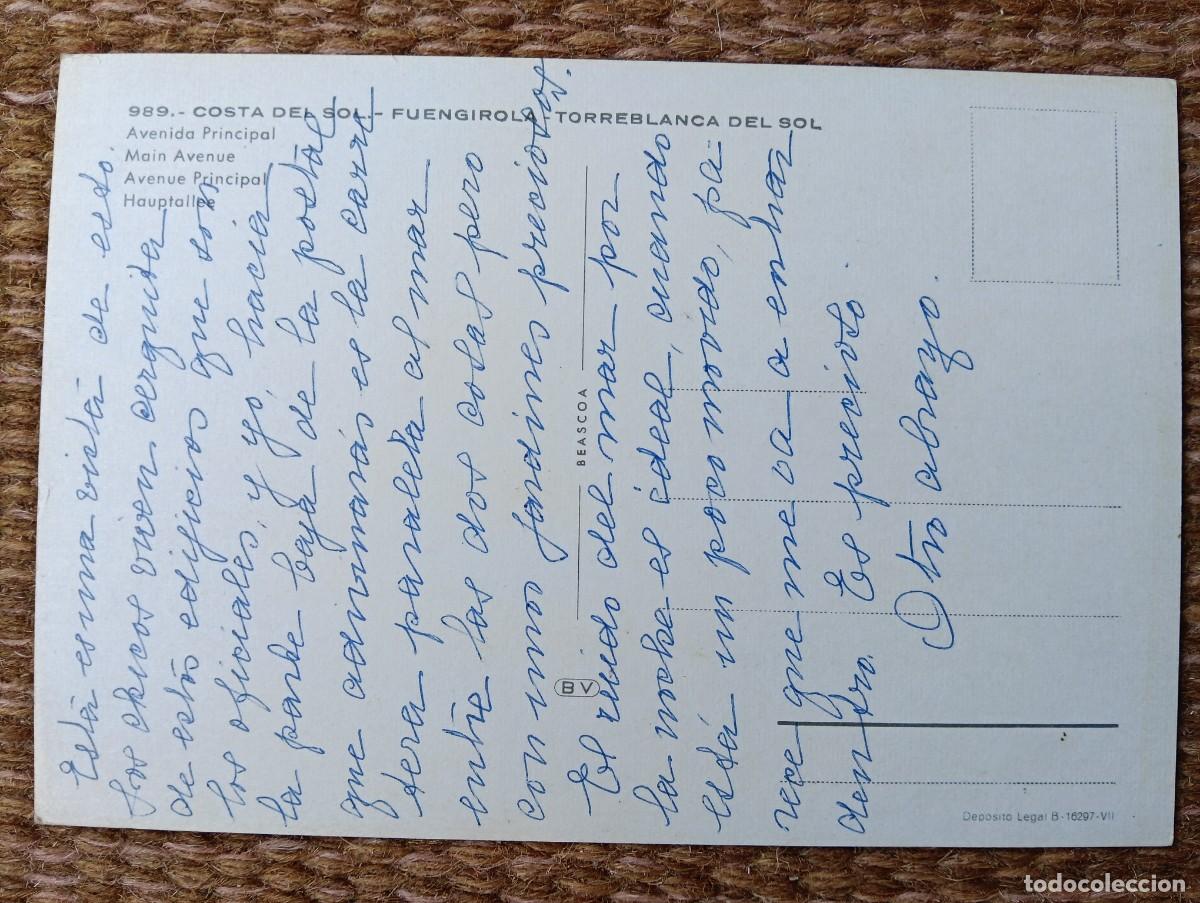 989.- COSTA DEL SOL.- FUENGIROLA.- TORREBLANCA DEL SOL
Avenida Principal
Main Avenue
Avenue Principal
Hauptallee
Esta es una vista de esto.
Los chicos viven cerquita
de estos edificios que son
los oficiales, y yo hacia
la parte baja de la postal
que adivinarás es la carre
tera paralela al mar
entre las dos cosas pero
con unos jardines preciosos.
El ruido del mar por
la noche es ideal, cuando
está un poco movido, pa-
rece que me va a entrar
dentro. Es precioso.
Otro abrazo.
BEASCOA
BV
Depósito Legal B-16297-VII
todocoleccion